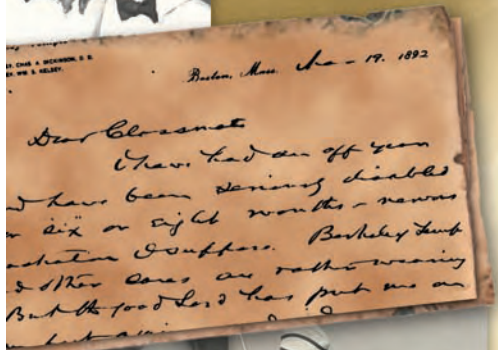 CHAS A. DICKINSON, D. D.
WM S. KELSEY.
Boston, Mass. 19. 1892
Dear Classmate
I have had an off year
have been seriously disabled
six or eight months - nervous
I suppose. Berkeley Temple
other cares are rather wearing
But the good Lord has put me on